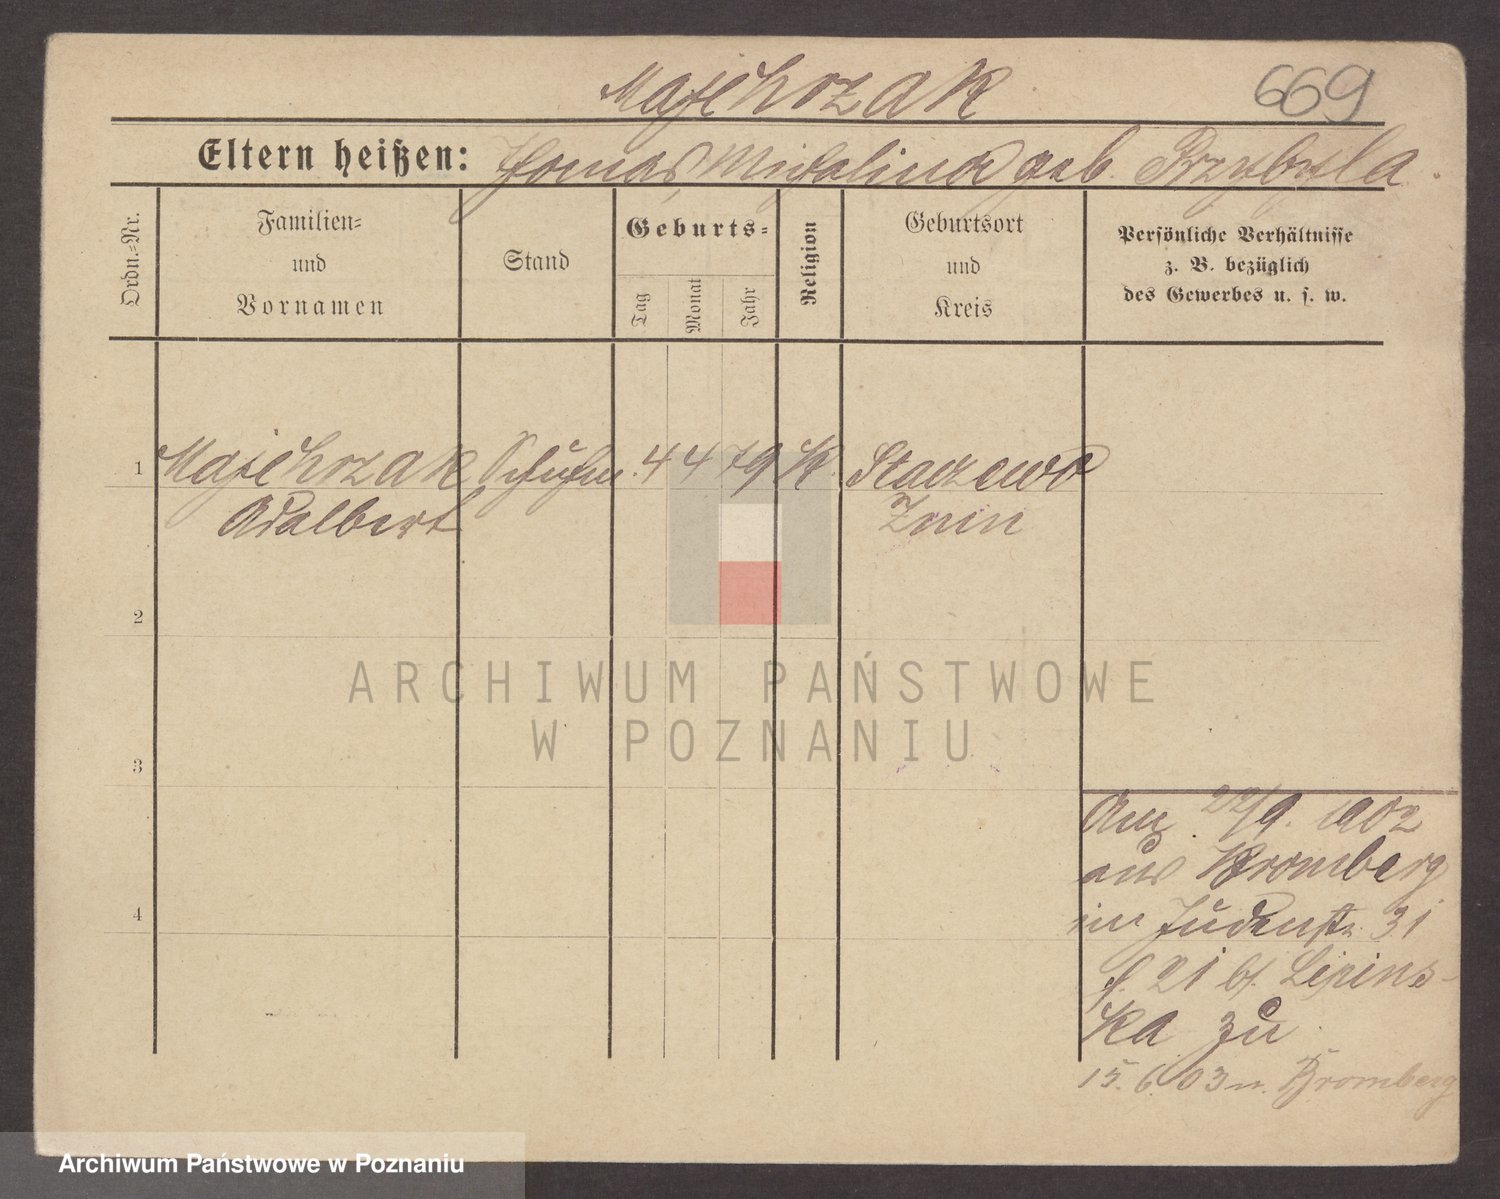 Majchrzak
669
Eltern heißen: Thomas Michalina geb. Przybyla
Ordn.-Nr.
Familien-
und
Vornamen
Stand
Geburts-
Tag
Monat
Jahr
Religion
Geburtsort
und
Kreis
Persönliche Verhältnisse
z. B. bezüglich
des Gewerbes u. s. w.
1 Majchrzak Schuhm. 4 4 79 K.
Adalbert Znin
2
3
4
Anz. 22/9. 1902
aus Bromberg
in Judenstr. 31
b/. Lipins-
ka zu
15. 6. 03 n. Bromberg
ARCHIWUM PAŃSTWOWE
W POZNANIU
Archiwum Państwowe w Poznaniu